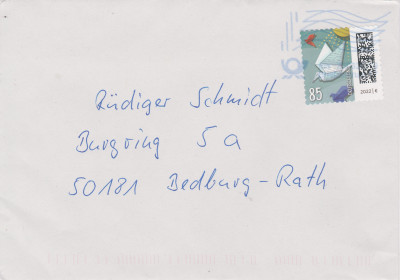 85
2022|6
Rüdiger Schmidt
Burgring 5a
50181 Bedburg-Rath